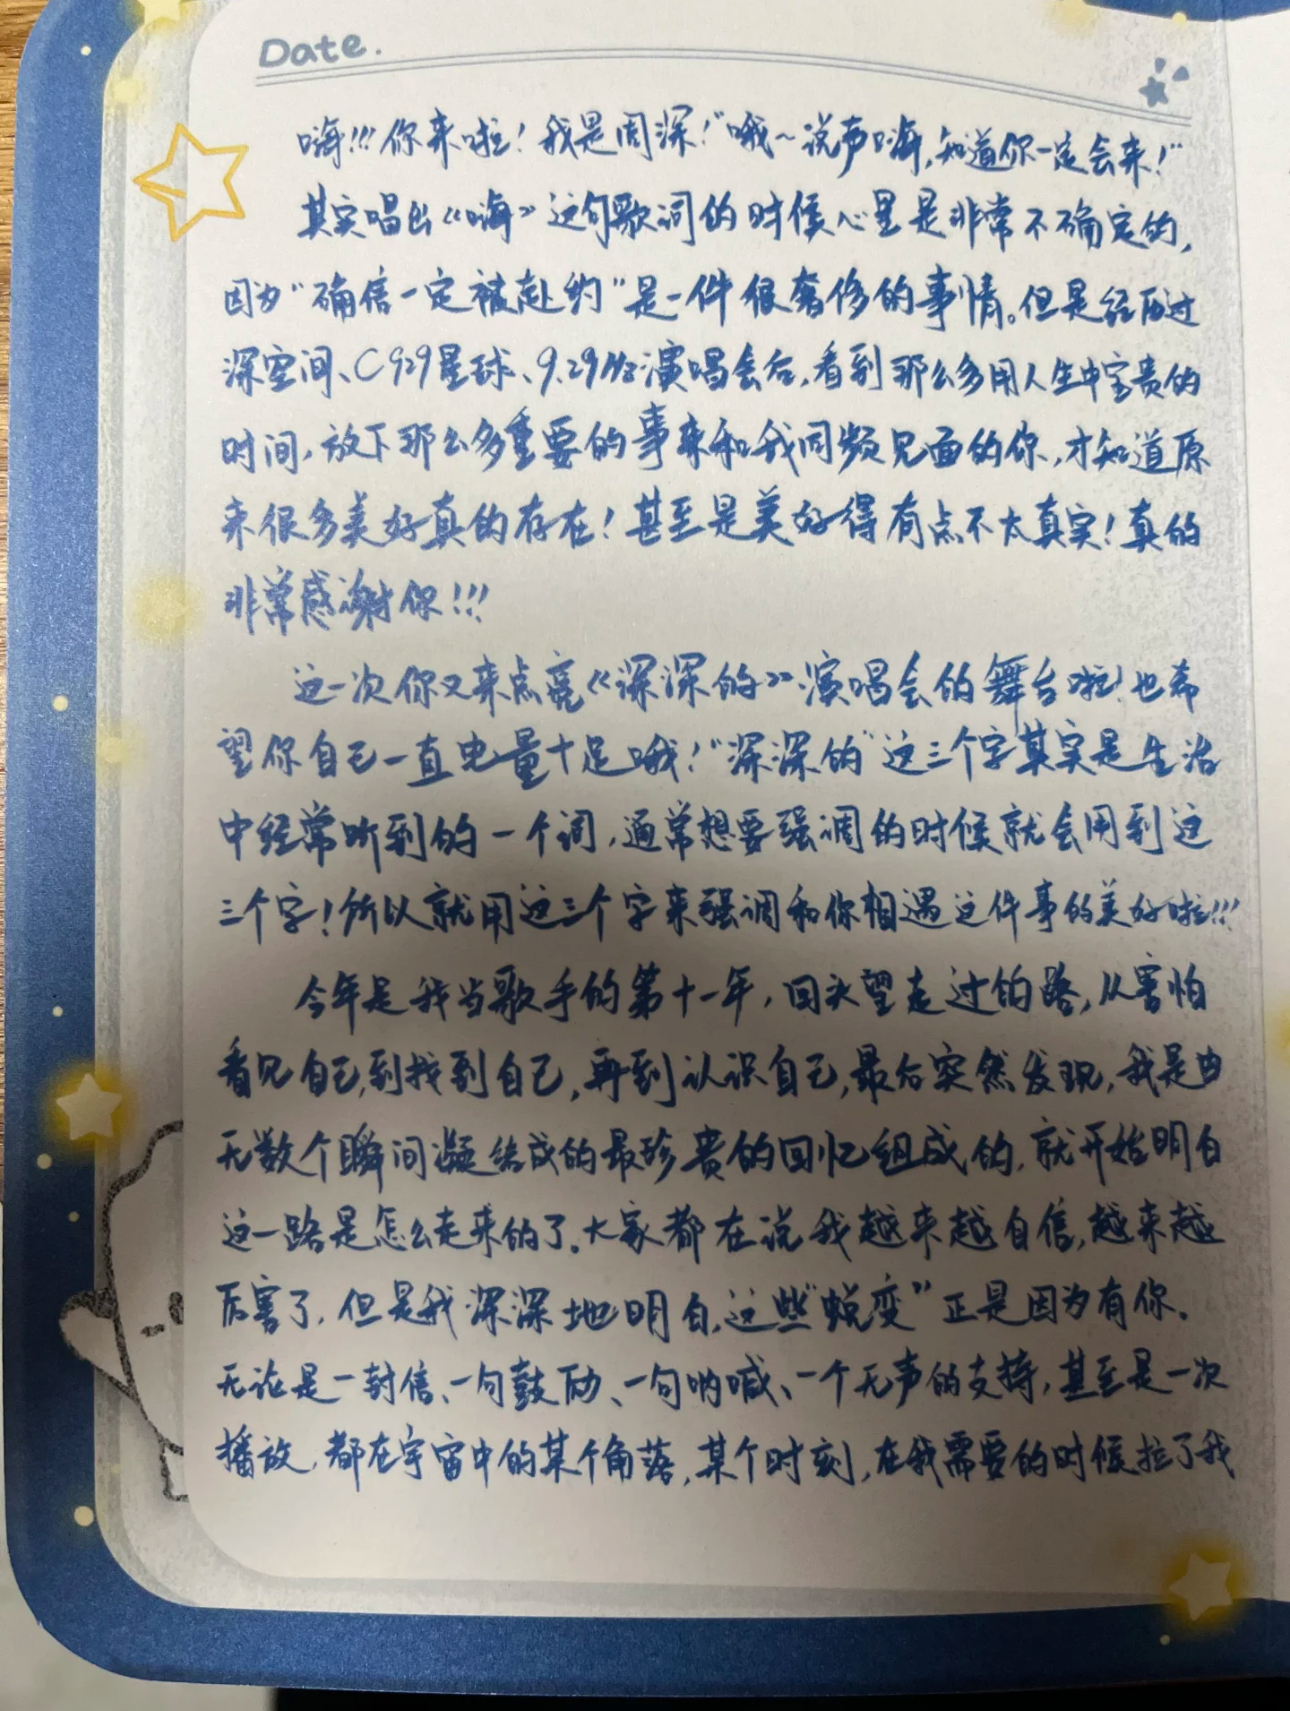 Date.
嗨!!!你来啦！我是周深！“哦~说声嗨，知道你一定会来！”
其实唱出《嗨》这句歌词的时候心里是非常不确定的，
因为“确信一定被赴约”是一件很奢侈的事情。但是经历过
深空间、C929星球、9.29Hz演唱会后，看到那么多用人生中宝贵的
时间，放下那么多重要的事来和我同频见面的你，才知道原
来很多美好真的存在！甚至是美好得有点不太真实！真的
非常感谢你!!!
这一次你又来点亮《深深的》演唱会的舞台啦！也希
望你自己一直电量十足哦！“深深的”这三个字其实是生活
中经常听到的一个词，通常想要强调的时候就会用到这
三个字！所以就用这三个字来强调和你相遇这件事的美好啦!!!
今年是我当歌手的第十一年，回头望走过的路，从害怕
看见自己，到找到自己，再到认识自己，最后突然发现，我是由
无数个瞬间凝结成的最珍贵的回忆组成的，就开始明白
这一路是怎么走来的了。大家都在说我越来越自信，越来越
厉害了，但是我深深地明白，这些“蜕变”正是因为有你。
无论是一封信、一句鼓励、一句呐喊、一个无声的支持，甚至是一次
播放，都在宇宙中的某个角落，某个时刻，在我需要的时候拉了我